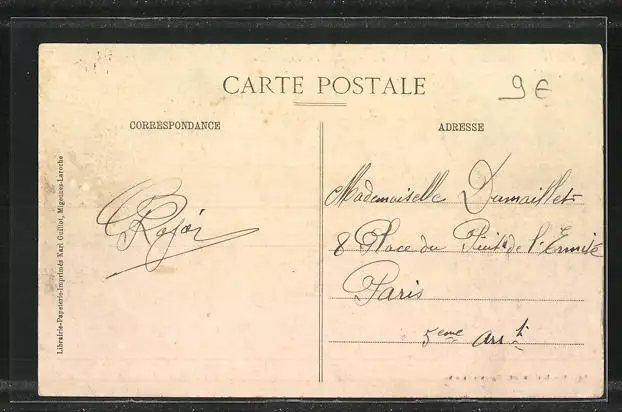 CARTE POSTALE
9 €
CORRESPONDANCE
ADRESSE
Librairie-Papeterie-Imprimés Karl Guillot, Migennes-Laroche
Mademoiselle Dumaillet
8 Place du Puits de l'Ermite
Paris
5eme Arrt